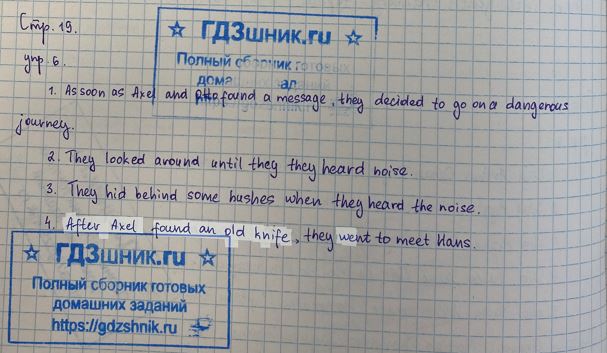 Стр. 19.
☆ ГДЗшник.ru ☆
упр. 6.
Полный сборник готовых
дома
1. As soon as Axel and Otto found a message, they decided to go on a dangerous
journey.
2. They looked around until they they heard noise.
3. They hid behind some bushes when they heard the noise.
4. After Axel found an old knife, they went to meet Hans.
☆ ГДЗшник.ru ☆
Полный сборник готовых
домашних заданий
https://gdzshnik.ru